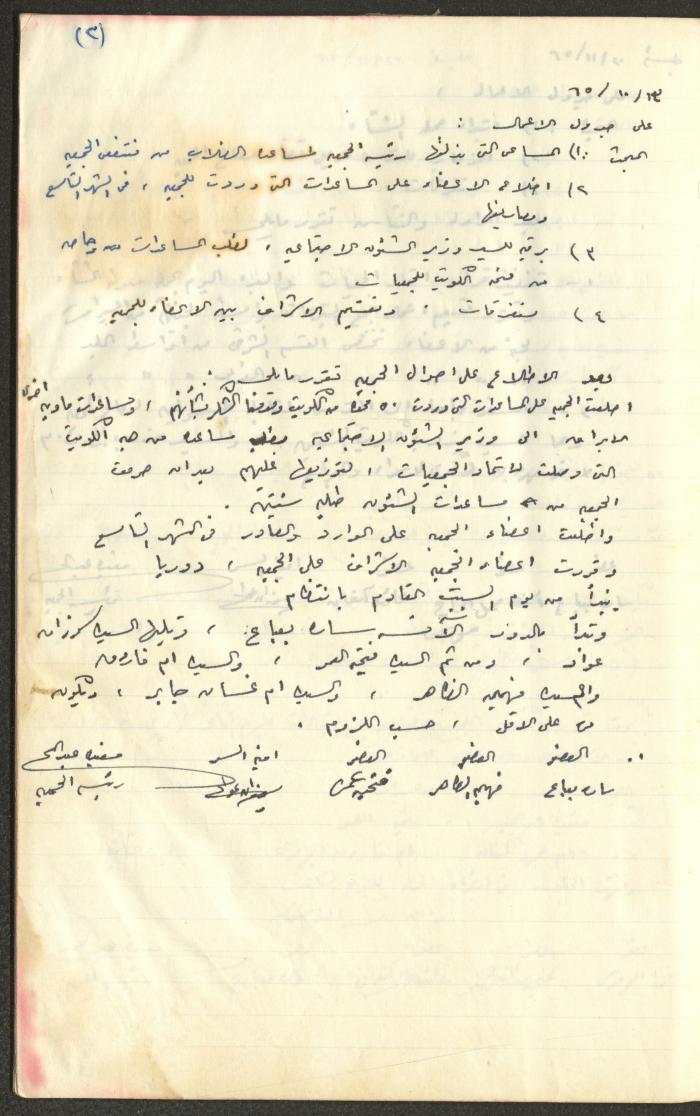 (٣)
٦٥/١٠/٢٣
على جدول الاعمال :
البحث : ١) المساعي التي بذلتها رئيسة الجمعيه لمساعدة الطلاب من منتفعي الجمعيه
٢) اطلاع الاعضاء على المساعدات التي وردت للجمعيه ، في الشهر التاسع
ومصاريفها
٣) برقيه للسيد وزير الشئون الاجتماعيه ، لطلب المساعدات
من منحة الكويت للجمعيات
٤) متفرقات . وتقسيم الاشراف بين الاعضاء للجمعيه
وبعد الاطلاع على احوال الجمعيه تقرر مايلي :
اطلعت الجمعيه على المساعدات التي وردت ٥٠ من الكويت وقدمنا الشكر بشأنهم ، ومساعدات ماديه اخرى
الابراق الى وزير الشئون الاجتماعيه بطلب مساعده من هبة الكويت
التي وصلت لاتحاد الجمعيات ، لتوزيعها عليهم بعد ان حرمت
الجمعيه من مساعدات الشئون طيلة سنتين .
واطلعت اعضاء الجمعيه على الوارد والصادر في الشهر التاسع
وقررت اعضاء الجمعيه الاشراف على الجمعيه ، دوريا
يبدأ من يوم السبت القادم بانتظام
وتبدأ بالدور الآنسه ساره بعباع ، وتليها السيده سوزان
عواد ، ومن ثم السيده فتحيه العمر ، والسيده ام فاروق
والسيده فهميه الظاهر ، والسيده ام غسان جابر ، ويكون
على الاقل ، حسب اللزوم .
العضو العضو العضو امينة السر
ساره بعباع فهميه الظاهر فتحيه عمر سوزان عواد رئيسة الجمعيه